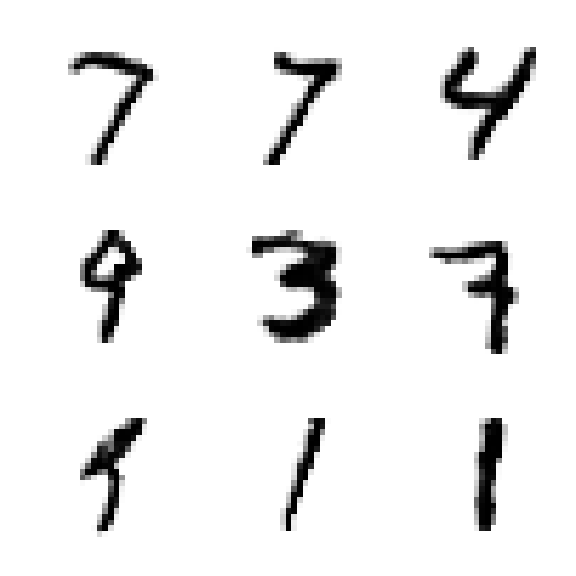 7 7 4
9 3 7
1 1